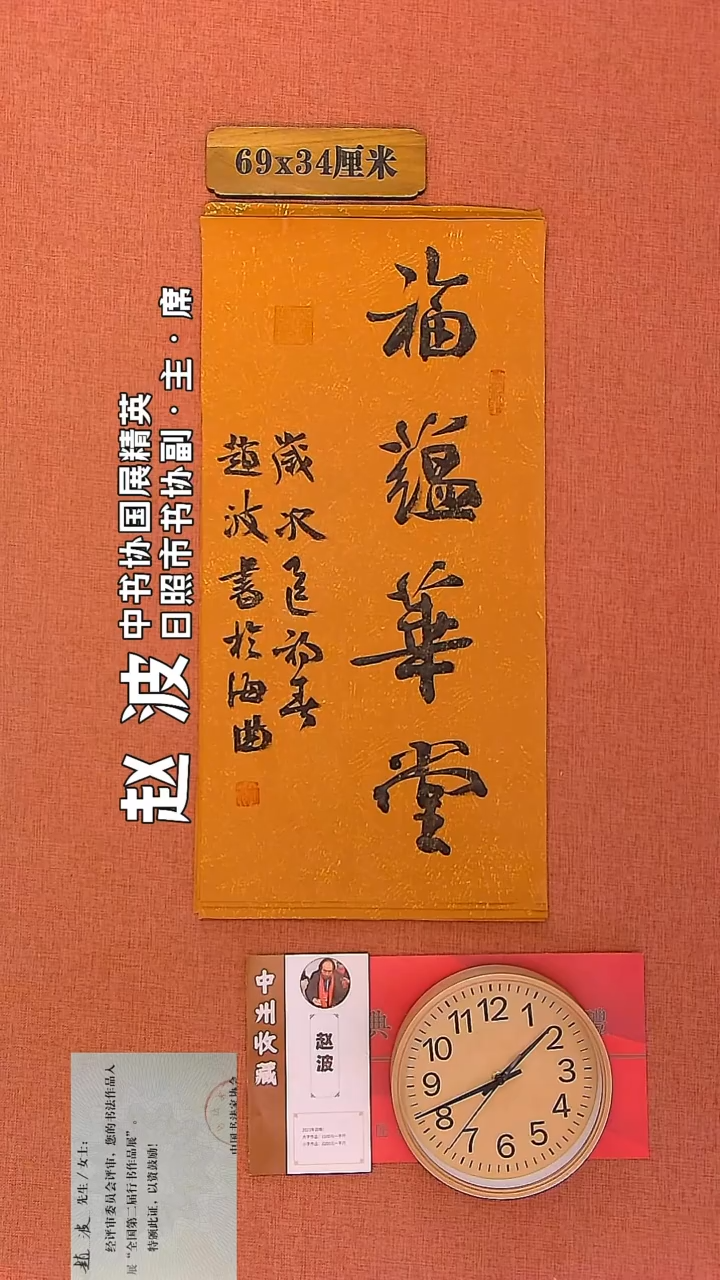 69x34厘米
福蕴華堂
歲次乙巳初春
趙波書於海曲
中书协国展精英
日照市书协副·主·席
赵波
赵波
典
12
1
2
3
4
5
6
7
8
9
10
11
趙波 先生/女士:
经评审委员会评审,您的书法作品入
展“全国第二届行书作品展”。
特颁此证,以资鼓励!
中国书法家协会